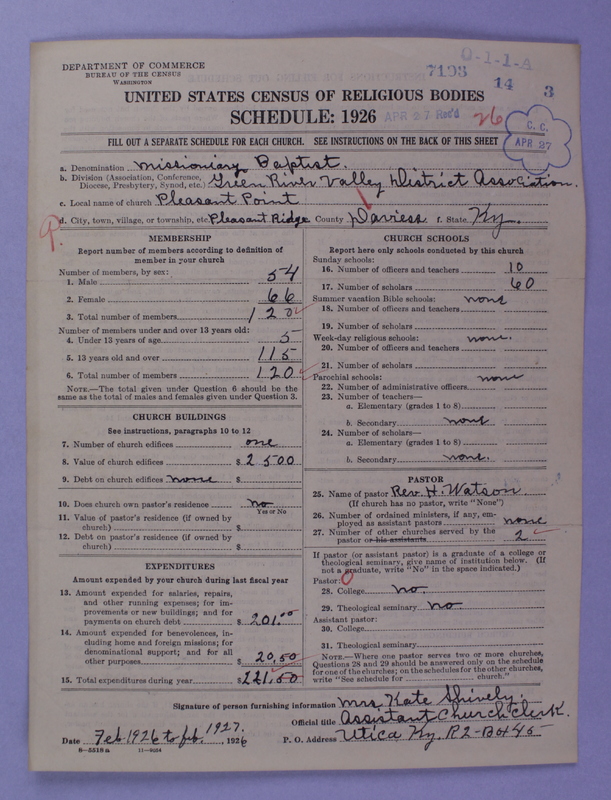 DEPARTMENT OF COMMERCE
BUREAU OF THE CENSUS
WASHINGTON
0-1-1-A
7193
14
3
UNITED STATES CENSUS OF RELIGIOUS BODIES
SCHEDULE: 1926
APR 27 Rec'd
26
C. C.
APR 27
FILL OUT A SEPARATE SCHEDULE FOR EACH CHURCH. SEE INSTRUCTIONS ON THE BACK OF THIS SHEET
a. Denomination Missionary Baptist.
b. Division (Association, Conference, Diocese, Presbytery, Synod, etc.) Green River Valley District Association.
c. Local name of church Pleasant Point
d. City, town, village, or township, etc. Pleasant Ridge County Daviess f. State Ky.
MEMBERSHIP
Report number of members according to definition of
member in your church
Number of members, by sex:
1. Male 54
2. Female 66
3. Total number of members 120
Number of members under and over 13 years old:
4. Under 13 years of age 5
5. 13 years old and over 115
6. Total number of members 120
NOTE.—The total given under Question 6 should be the
same as the total of males and females given under Question 3.
CHURCH BUILDINGS
See instructions, paragraphs 10 to 12
7. Number of church edifices one
8. Value of church edifices $ 2500
9. Debt on church edifices none $
10. Does church own pastor's residence no
Yes or No
11. Value of pastor's residence (if owned by
church) $
12. Debt on pastor's residence (if owned by
church) $
EXPENDITURES
Amount expended by your church during last fiscal year
13. Amount expended for salaries, repairs,
and other running expenses; for im-
provements or new buildings; and for
payments on church debt $ 201.00
14. Amount expended for benevolences, in-
cluding home and foreign missions; for
denominational support; and for all
other purposes $ 20,50
15. Total expenditures during year $ 221,50
CHURCH SCHOOLS
Report here only schools conducted by this church
Sunday schools:
16. Number of officers and teachers 10
17. Number of scholars 60
Summer vacation Bible schools: none
18. Number of officers and teachers
19. Number of scholars
Week-day religious schools: none.
20. Number of officers and teachers
21. Number of scholars
Parochial schools: none
22. Number of administrative officers
23. Number of teachers—
a. Elementary (grades 1 to 8)
b. Secondary none
24. Number of scholars—
a. Elementary (grades 1 to 8)
b. Secondary none.
PASTOR
25. Name of pastor Rev. H. Watson
(If church has no pastor, write "None")
26. Number of ordained ministers, if any, em-
ployed as assistant pastors none
27. Number of other churches served by the
pastor or his assistants 2
If pastor (or assistant pastor) is a graduate of a college or
theological seminary, give name of institution below. (If
not a graduate, write "No" in the space indicated.)
Pastor: 0
28. College no.
29. Theological seminary no
Assistant pastor:
30. College
31. Theological seminary
NOTE.—Where one pastor serves two or more churches,
Questions 28 and 29 should be answered only on the schedule
for one of the churches; on the schedules for the other churches,
write "See schedule for church."
Signature of person furnishing information Mrs Kate Shively.
Official title Assistant Church Clerk.
Date Feb 1926 to feb. 1927. , 1926
P. O. Address Utica Ky. R2-Box 45
8-5518a 11-9034